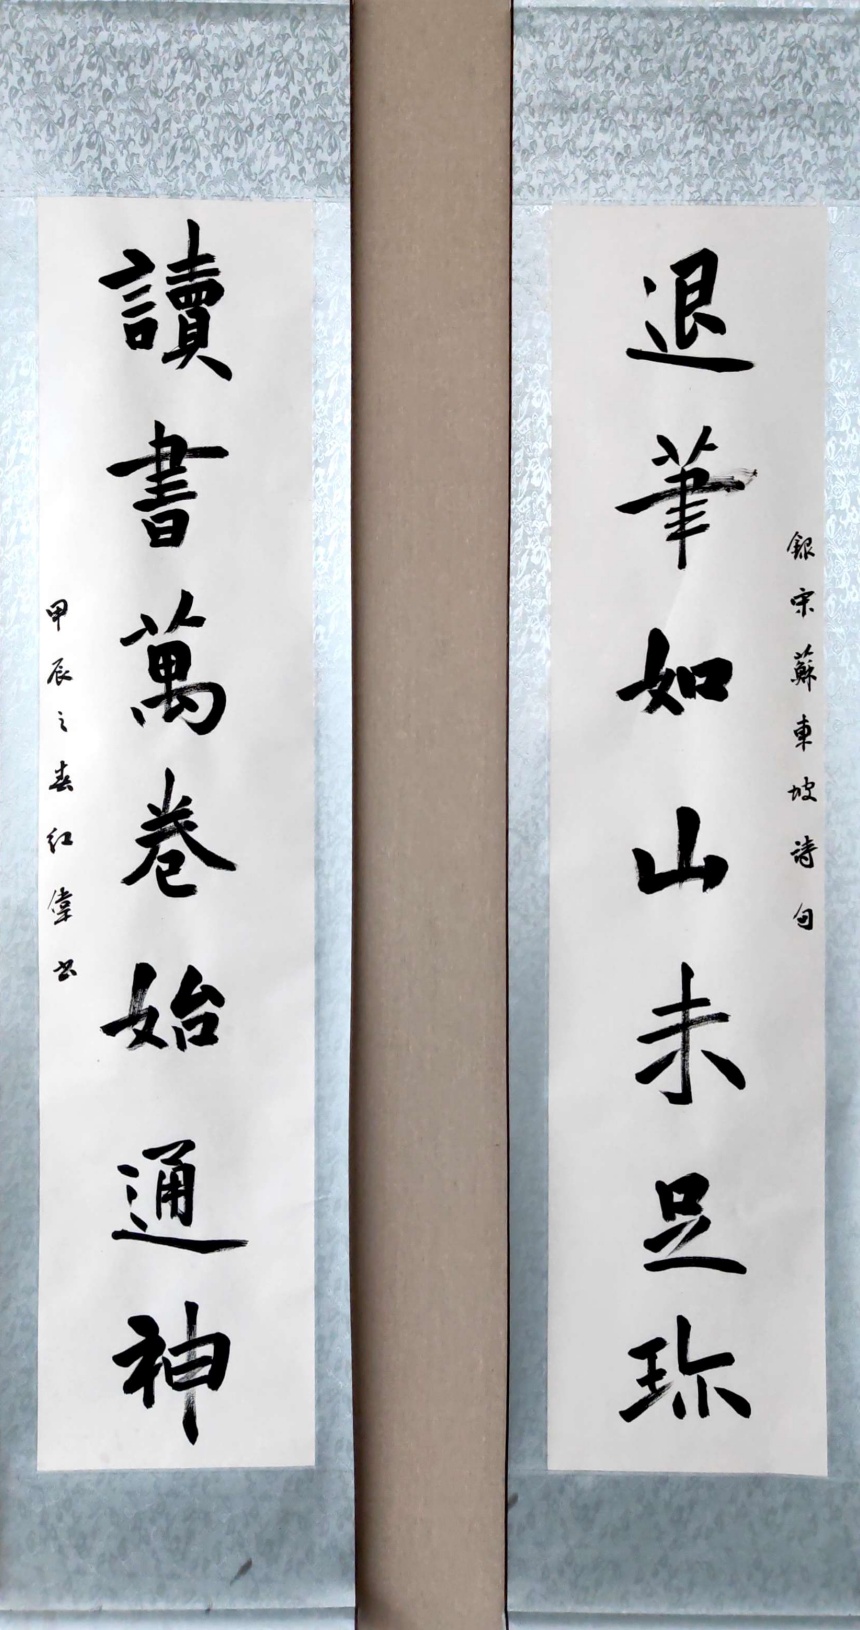 銀宋蘇東坡詩句
退筆如山未足珎
讀書萬卷始通神
甲辰之春紅偉书